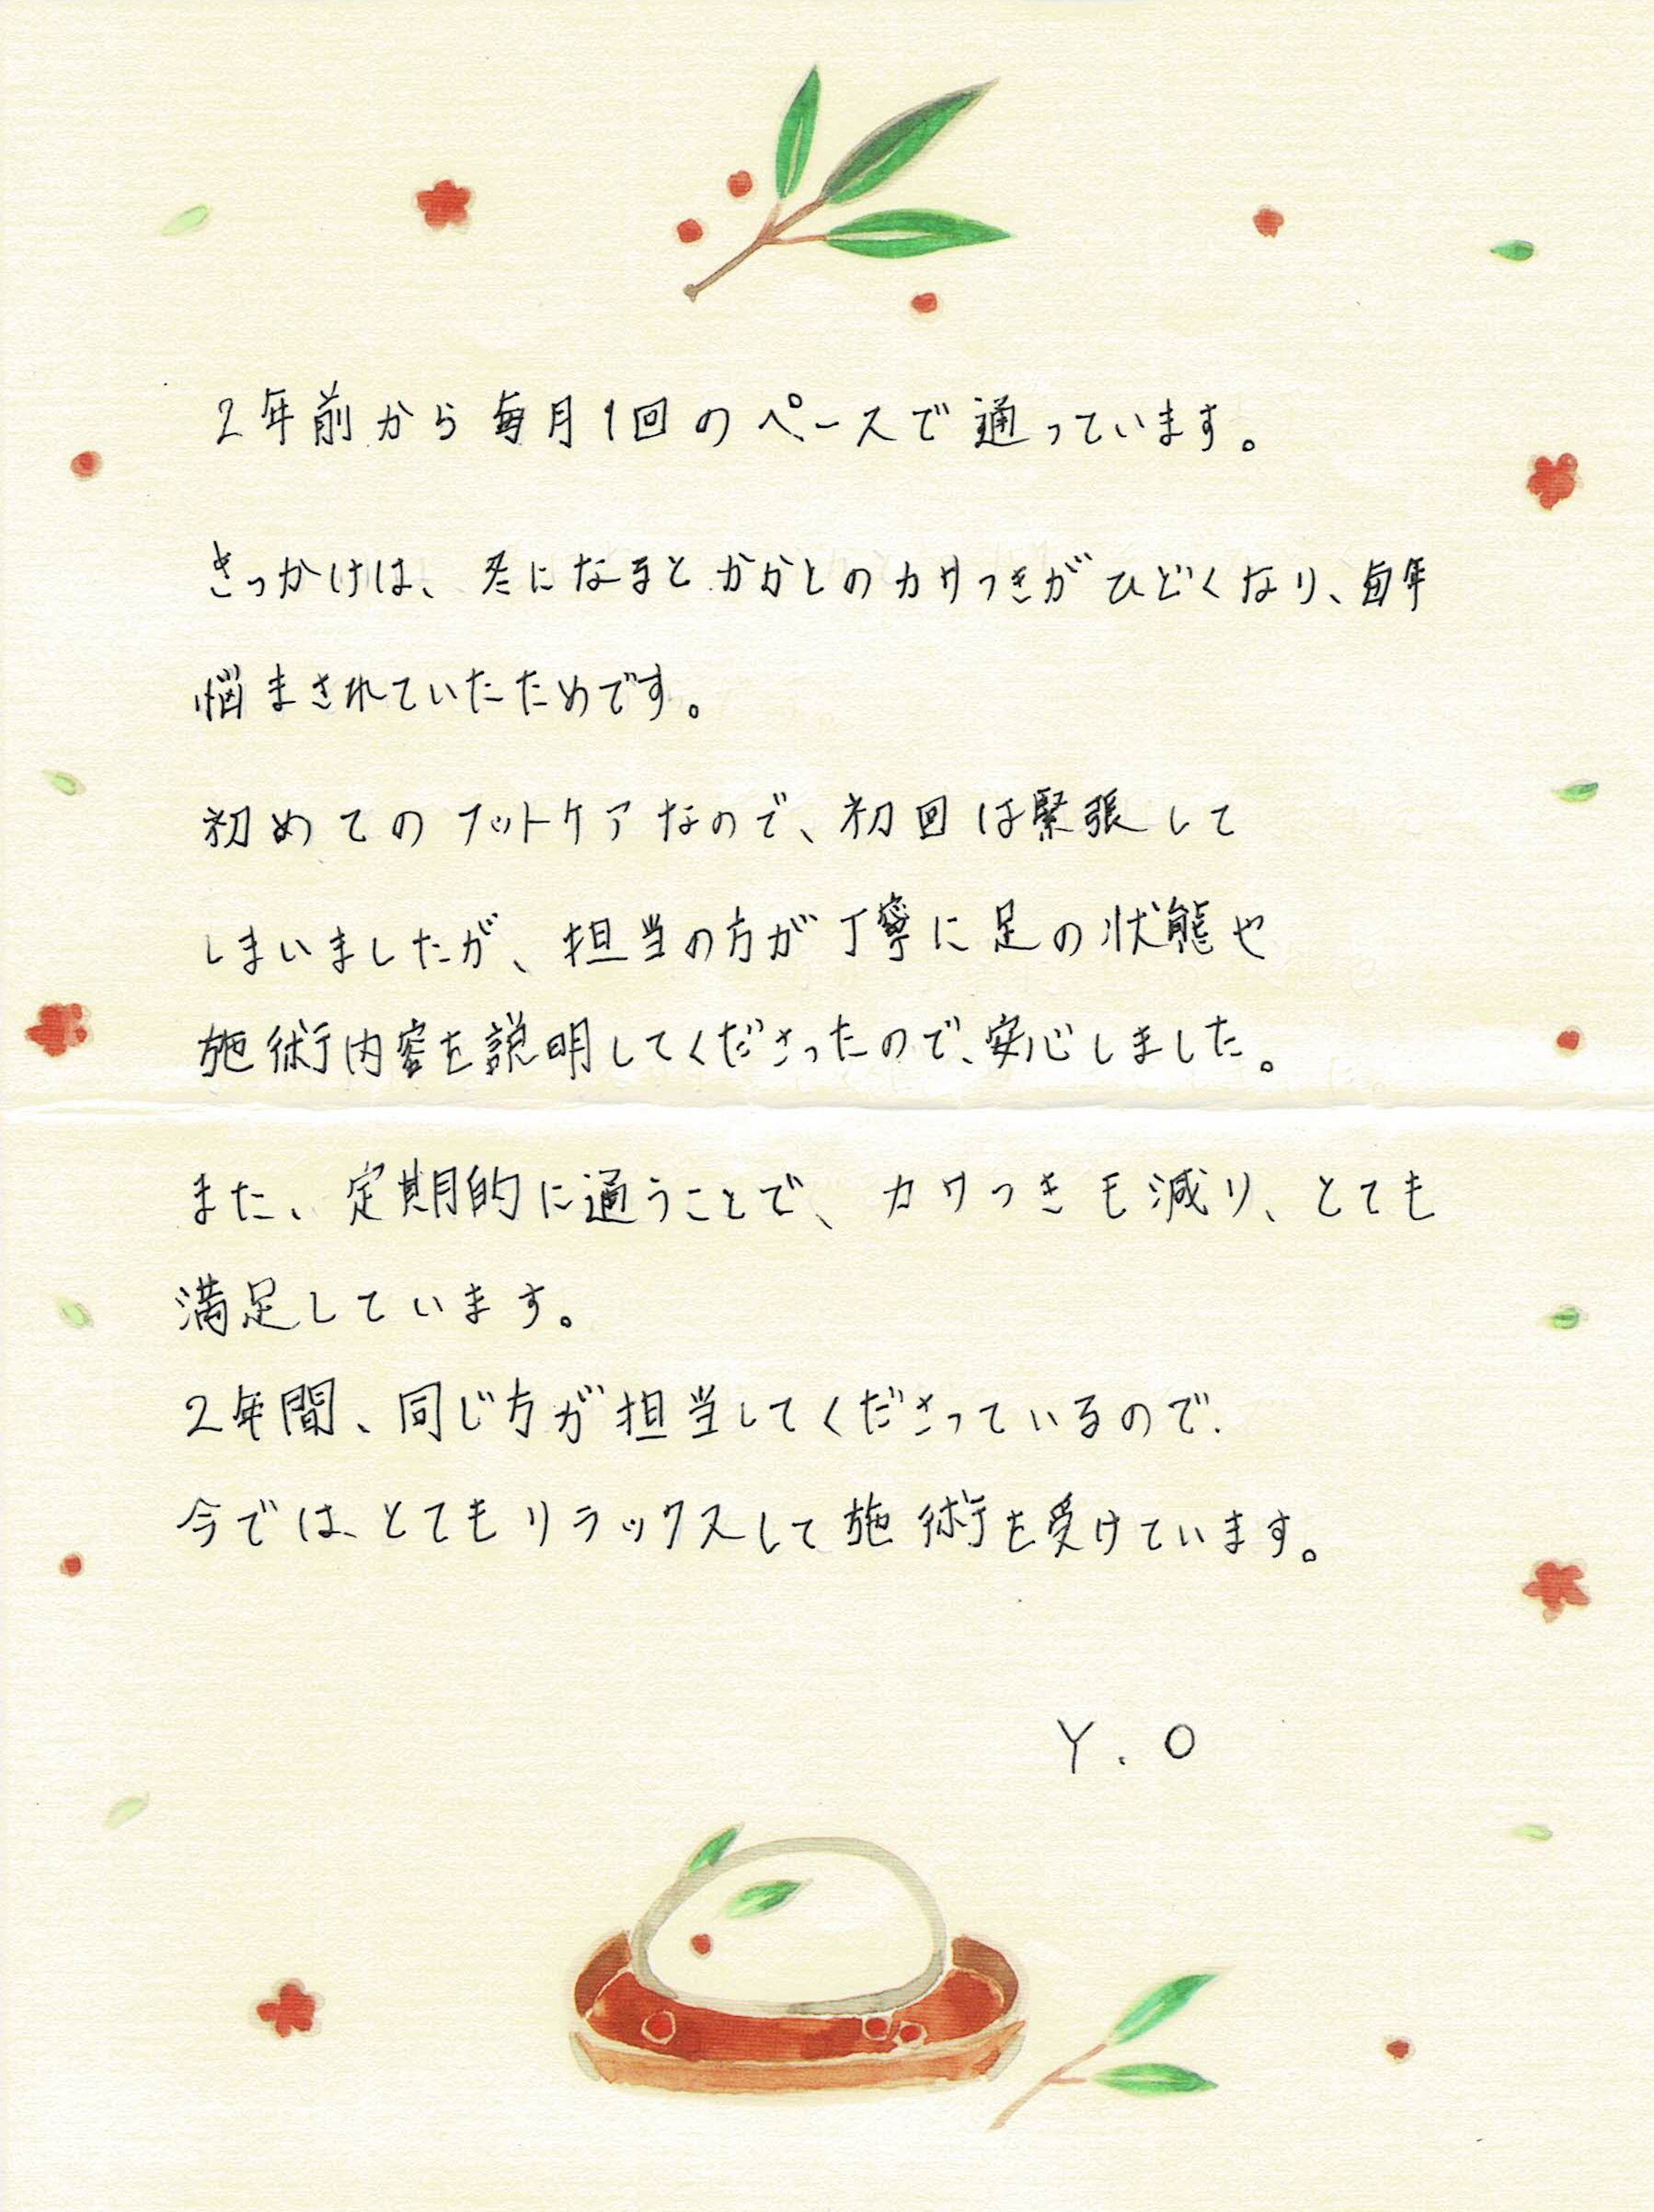 2年前から毎月1回のペースで通っています。
きっかけは、冬になるとかかとのカサつきがひどくなり、毎年
悩まされていたためです。
初めてのフットケアなので、初回は緊張して
しまいましたが、担当の方が丁寧に足の状態や
施術内容を説明してくださったので、安心しました。
また、定期的に通うことで、カサつきも減り、とても
満足しています。
2年間、同じ方が担当してくださっているので、
今では、とてもリラックスして施術を受けています。
Y.O